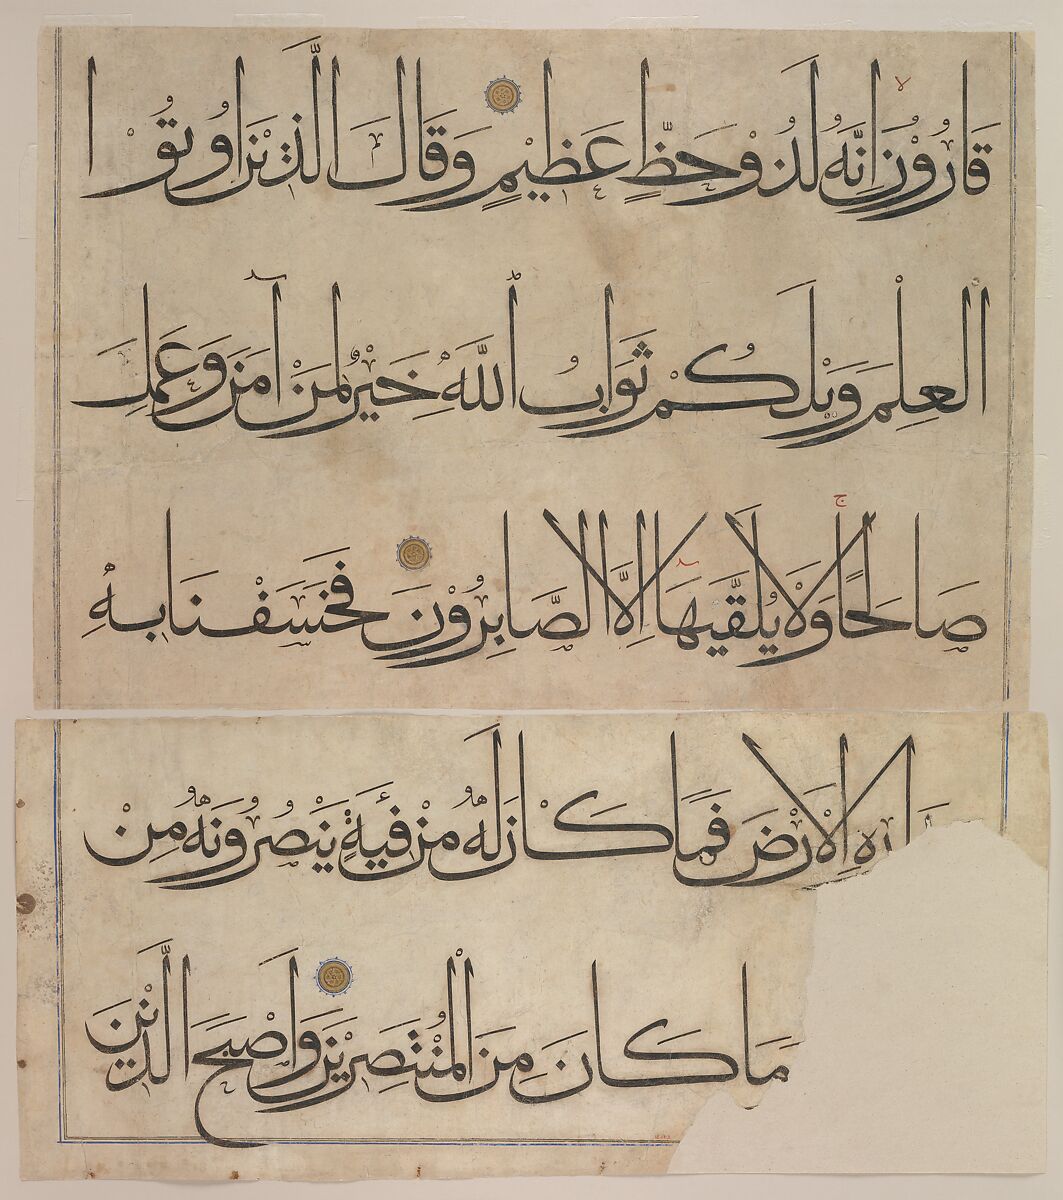 قَارُوْنُ اِنَّهُ لَذُوْ حَظٍّ عَظِيْمٍ وَقَالَ الَّذِيْنَ اُوتُوْا
الْعِلْمَ وَيْلَكُمْ ثَوَابُ اللَّهِ خَيْرٌ لِمَنْ آمَنَ وَعَمِلَ
صَالِحًا وَلَا يُلَقَّيهَا اِلَّا الصَّابِرُوْنَ فَخَسَفْنَا بِهِ
الْاَرْضَ فَمَا كَانَ لَهُ مِنْ فِئَةٍ يَنْصُرُوْنَهُ مِنْ
مَا كَانَ مِنَ الْمُنْتَصِرِيْنَ وَاَصْبَحَ الَّذِيْنَ